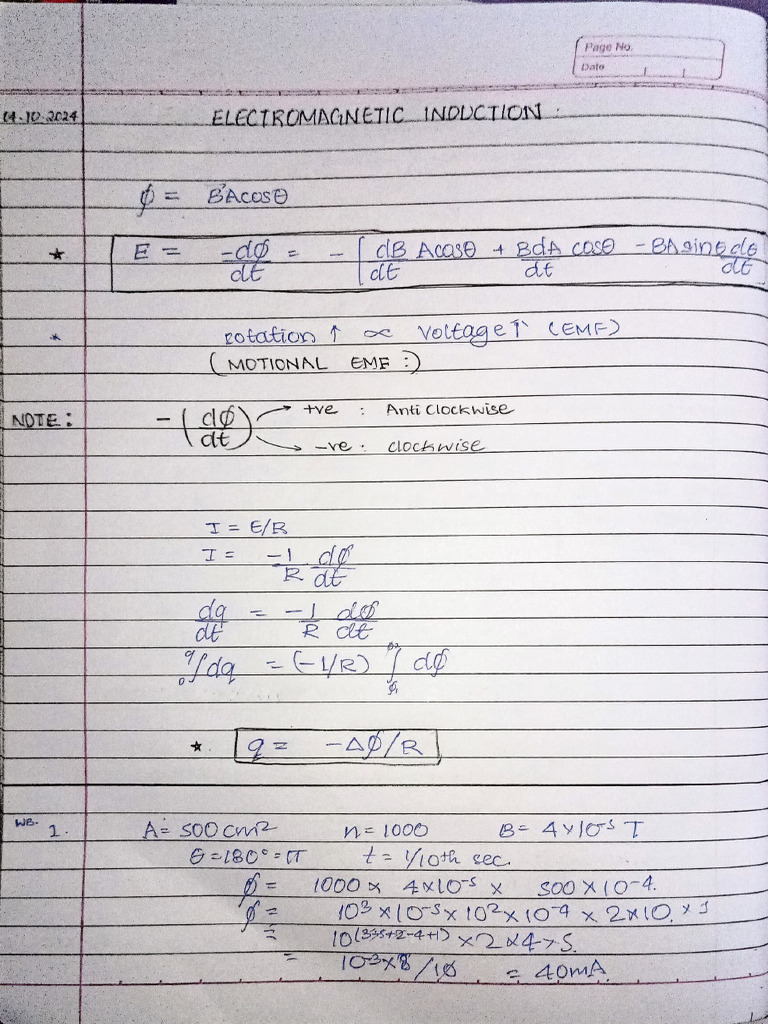 Page No.
Date
04.10.2024 ELECTROMAGNETIC INDUCTION :
ϕ = BAcosθ
★ E = -dϕ/dt = -[dB/dt Acosθ + BdA/dt cosθ - BAsinθ dθ/dt
* rotation ↑ ∝ voltage ↑ (EMF)
(MOTIONAL EMF :)
NOTE : -(dϕ/dt) → +ve : Anti Clockwise
→ -ve : clockwise
I = E/R
I = -1/R dϕ/dt
dq/dt = -1/R dϕ/dt
₀q∫dq = (-1/R) ϕ₁ϕ₂∫ dϕ
★ q = -Δϕ/R
WB. 1. A = 500cm² n = 1000 B = 4×10⁻⁵ T
θ = 180° = π t = 1/10th sec.
ϕ = 1000 × 4×10⁻⁵ × 500×10⁻⁴.
ϕ = 10³ × 10⁻⁵ × 10² × 10⁻⁴ × 2×10
= ×2×4×5
= 10⁻³×8/10 = 40mA